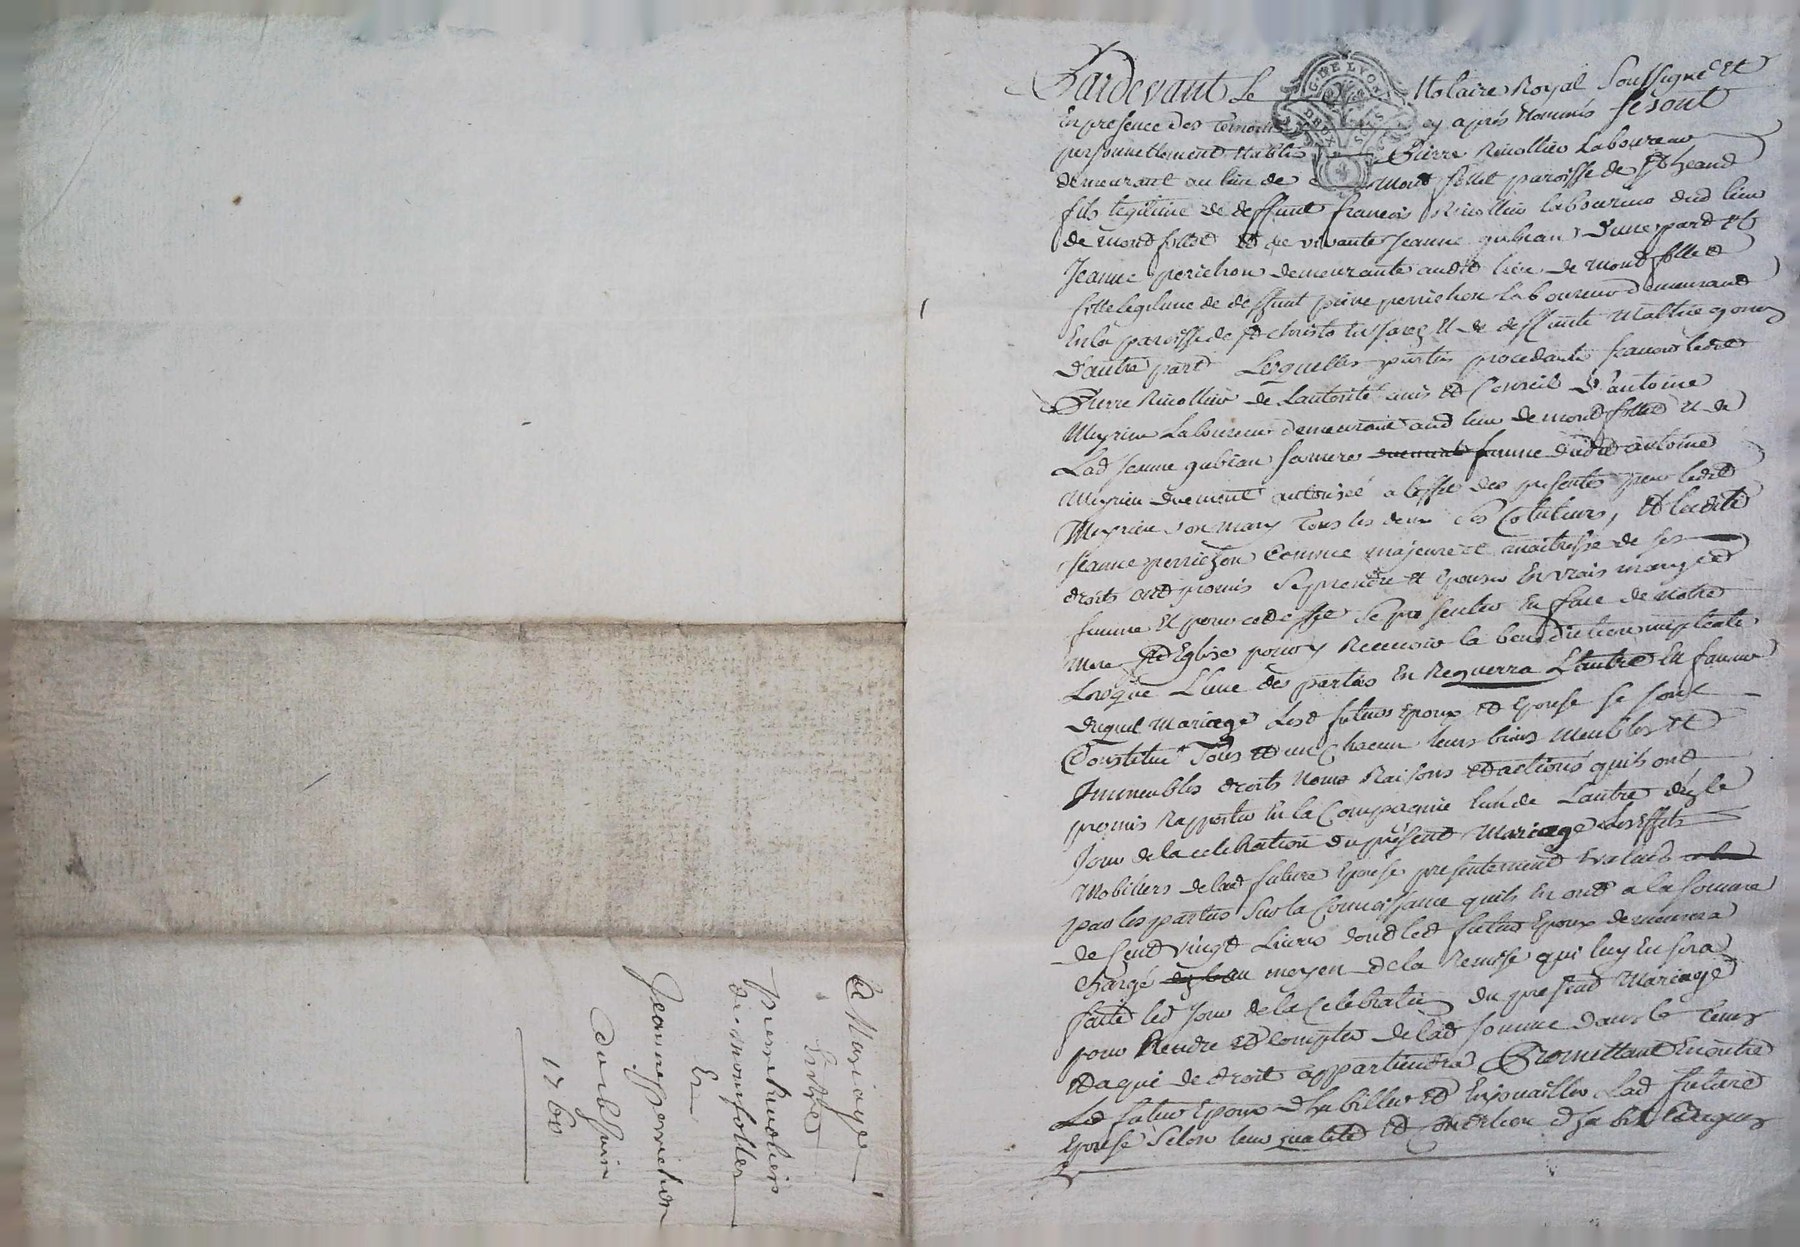 Pardevant Le Notaire Royal Soussigné Et
En presence des temoins cy après Nommés se sont
personnellement Etablis Pierre Rivollier Laboureur
demeurant au lieu de Montfollet paroisse de St heand
fils legitime de deffunt francois Rivollier laboureur dud lieu
de montfollet Et de vivante Jeanne gubian d'une part Et
Jeanne perichon demeurante audit lieu de montfollet
fille legitime de deffunt pierre perrichon Laboureur demeurant
En la paroisse de St christo Et de deffunte
D'autre part Lesquelles parties procedante scavoir ledit
Pierre Rivollier de Lautorité avis Et Conseil D'antoine
Meyrieu Laboureur demeurant aud lieu de montfollet Et de
Lad Jeanne gubian sa mere femme dudit antoine
Meyrieu duement autorisée a leffet des presentes par ledit
Meyrieu son mary tous les deux ses Cotuteurs, Et ladite
Jeanne perrichon comme majeure Et maitresse de ses
droits ont promis se prendre Et Epouser En vrais mary Et
femme Et pour cet effet se presenter En face de notre
mere Ste Eglise pour y Recevoir la benediction nuptiale
Lorsque L'une des parties En Requerra L'autre En faveur
duquel Mariage Lesd futurs Epoux Et Epouse se sont
Constitué Tous Et un Chacun leurs biens Meubles Et
Immeubles droits Noms Raisons Et actions quils ont
promis Rapporter En la Compagnie l'un de L'autre dez le
Jour de la celebration du present Mariage Les Effets
Mobiliers de lad future Epouse presentement Evalués
par les parties Sur la Connoissance quils En ont a la somme
de Cent vingt Livres dont led futur Epoux demeurera
Chargé au moyen de la Remise qui luy En sera
faite led Jour de la Celebration du present Mariage
pour Rendre Et compter de lad somme dans le temps
Et a qui de droit appartiendra Promettant En outre
Led futur Epoux d'habiller Et Enjouailler Lad future
Epouse Selon leur qualité Et Condition
Mariage
Entre
pierre Rivolier
de monfollet
Et
Jeanne perrichon
1760